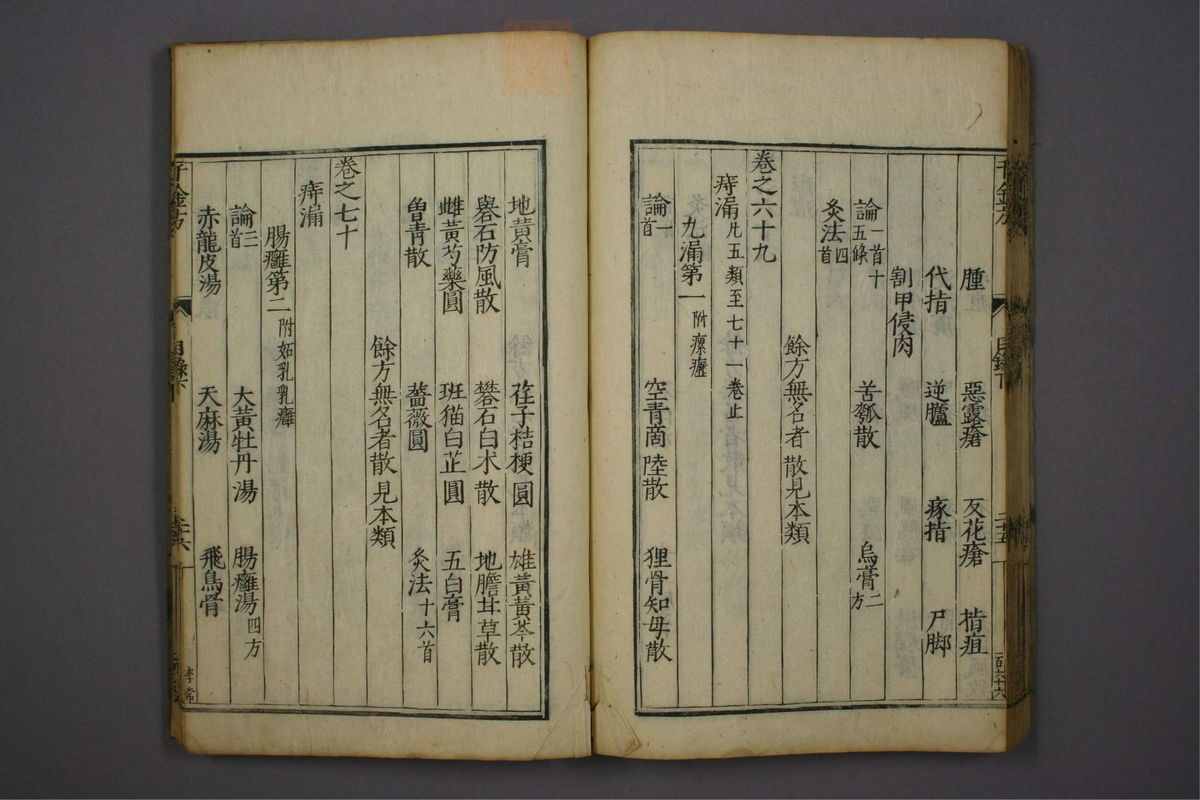 腫 惡露瘡 反花瘡 㨝疽
代指 逆臚 瘃指 尸脚
割甲侵肉
論一首十五條 苦瓠散 烏膏二方
灸法四首
餘方無名者散見本類
卷之六十九
痔漏凡五類至七十一卷止
九漏第一附瘰癧
論一首 空青商陸散 狸骨知母散
地黃膏 荏子桔梗圓 雄黃黃芩散
礜石防風散 礬石白朮散 地膽甘草散
雌黃芍藥圓 班猫白芷圓 五白膏
曾青散 薔薇圓 灸法十六首
餘方無名者散見本類
卷之七十
痔漏
腸癰第二附妬乳乳癰
論三首 大黃牡丹湯 腸癰湯四方
赤龍皮湯 天麻湯 飛烏骨
千金方 目錄下
李常